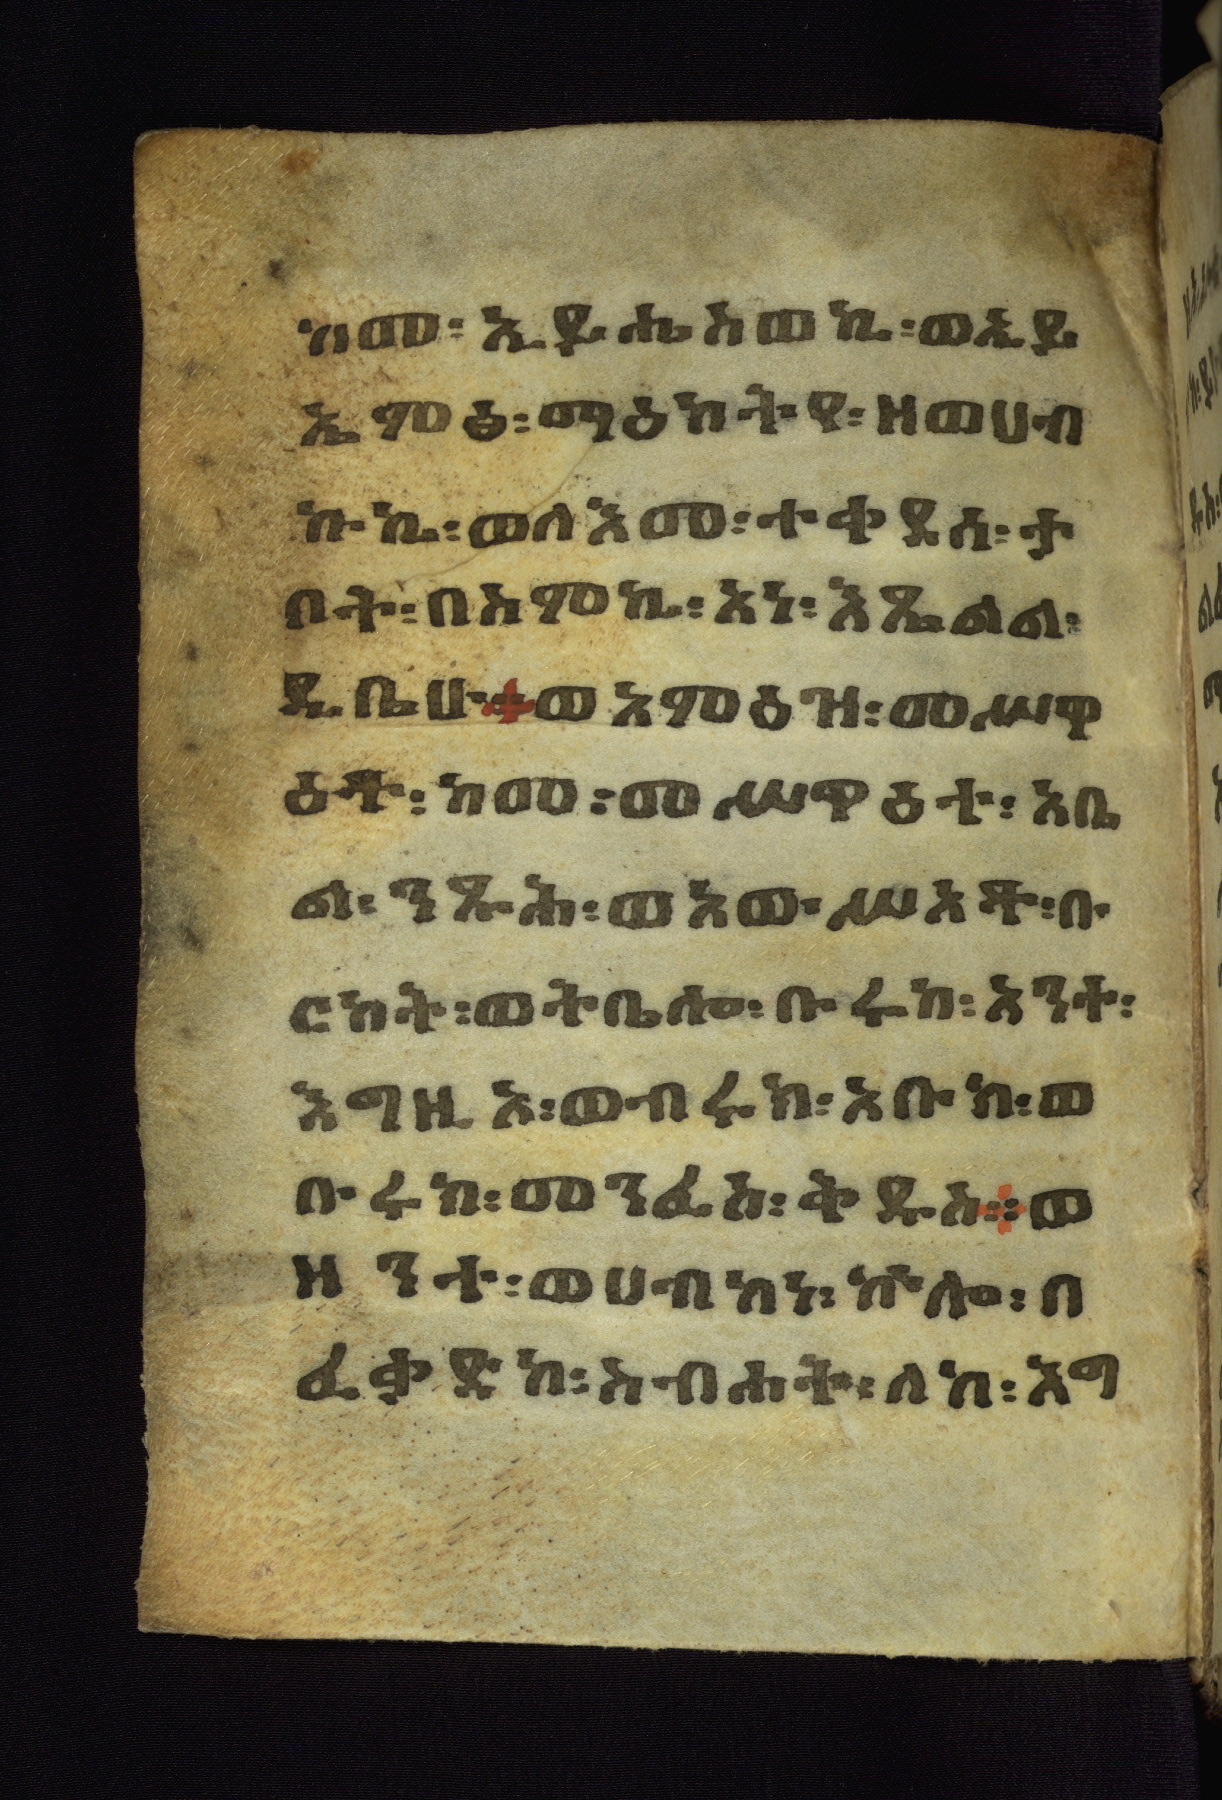 ከመ፡ ኢይሔስወኪ፡ ወኢይ
ኤምፅ፡ ማዕከትየ፡ ዘወሀብ
ኩኪ፡ ወለእመ፡ ተቀደሰ፡ ታ
ቦት፡ በስምኪ፡ አነ፡ እጼልል፡
ዲቤሁ። ወእምዕዝ፡ መሥዋ
ዕት፡ ከመ፡ መሥዋዕተ፡ አቤ
ል፡ ንጹሕ፡ ወአውሥአት፡ ቡ
ርክት፡ ወትቤሎ፡ ቡሩክ፡ አንተ፡
እግዚኦ፡ ወብሩክ፡ አቡከ፡ ወ
ቡሩክ፡ መንፈስ፡ ቅዱስ። ወ
ዘንተ፡ ወሀብከነ፡ ኵሎ፡ በ
ፈቃድከ፡ ስብሐት፡ ለከ፡ እግ